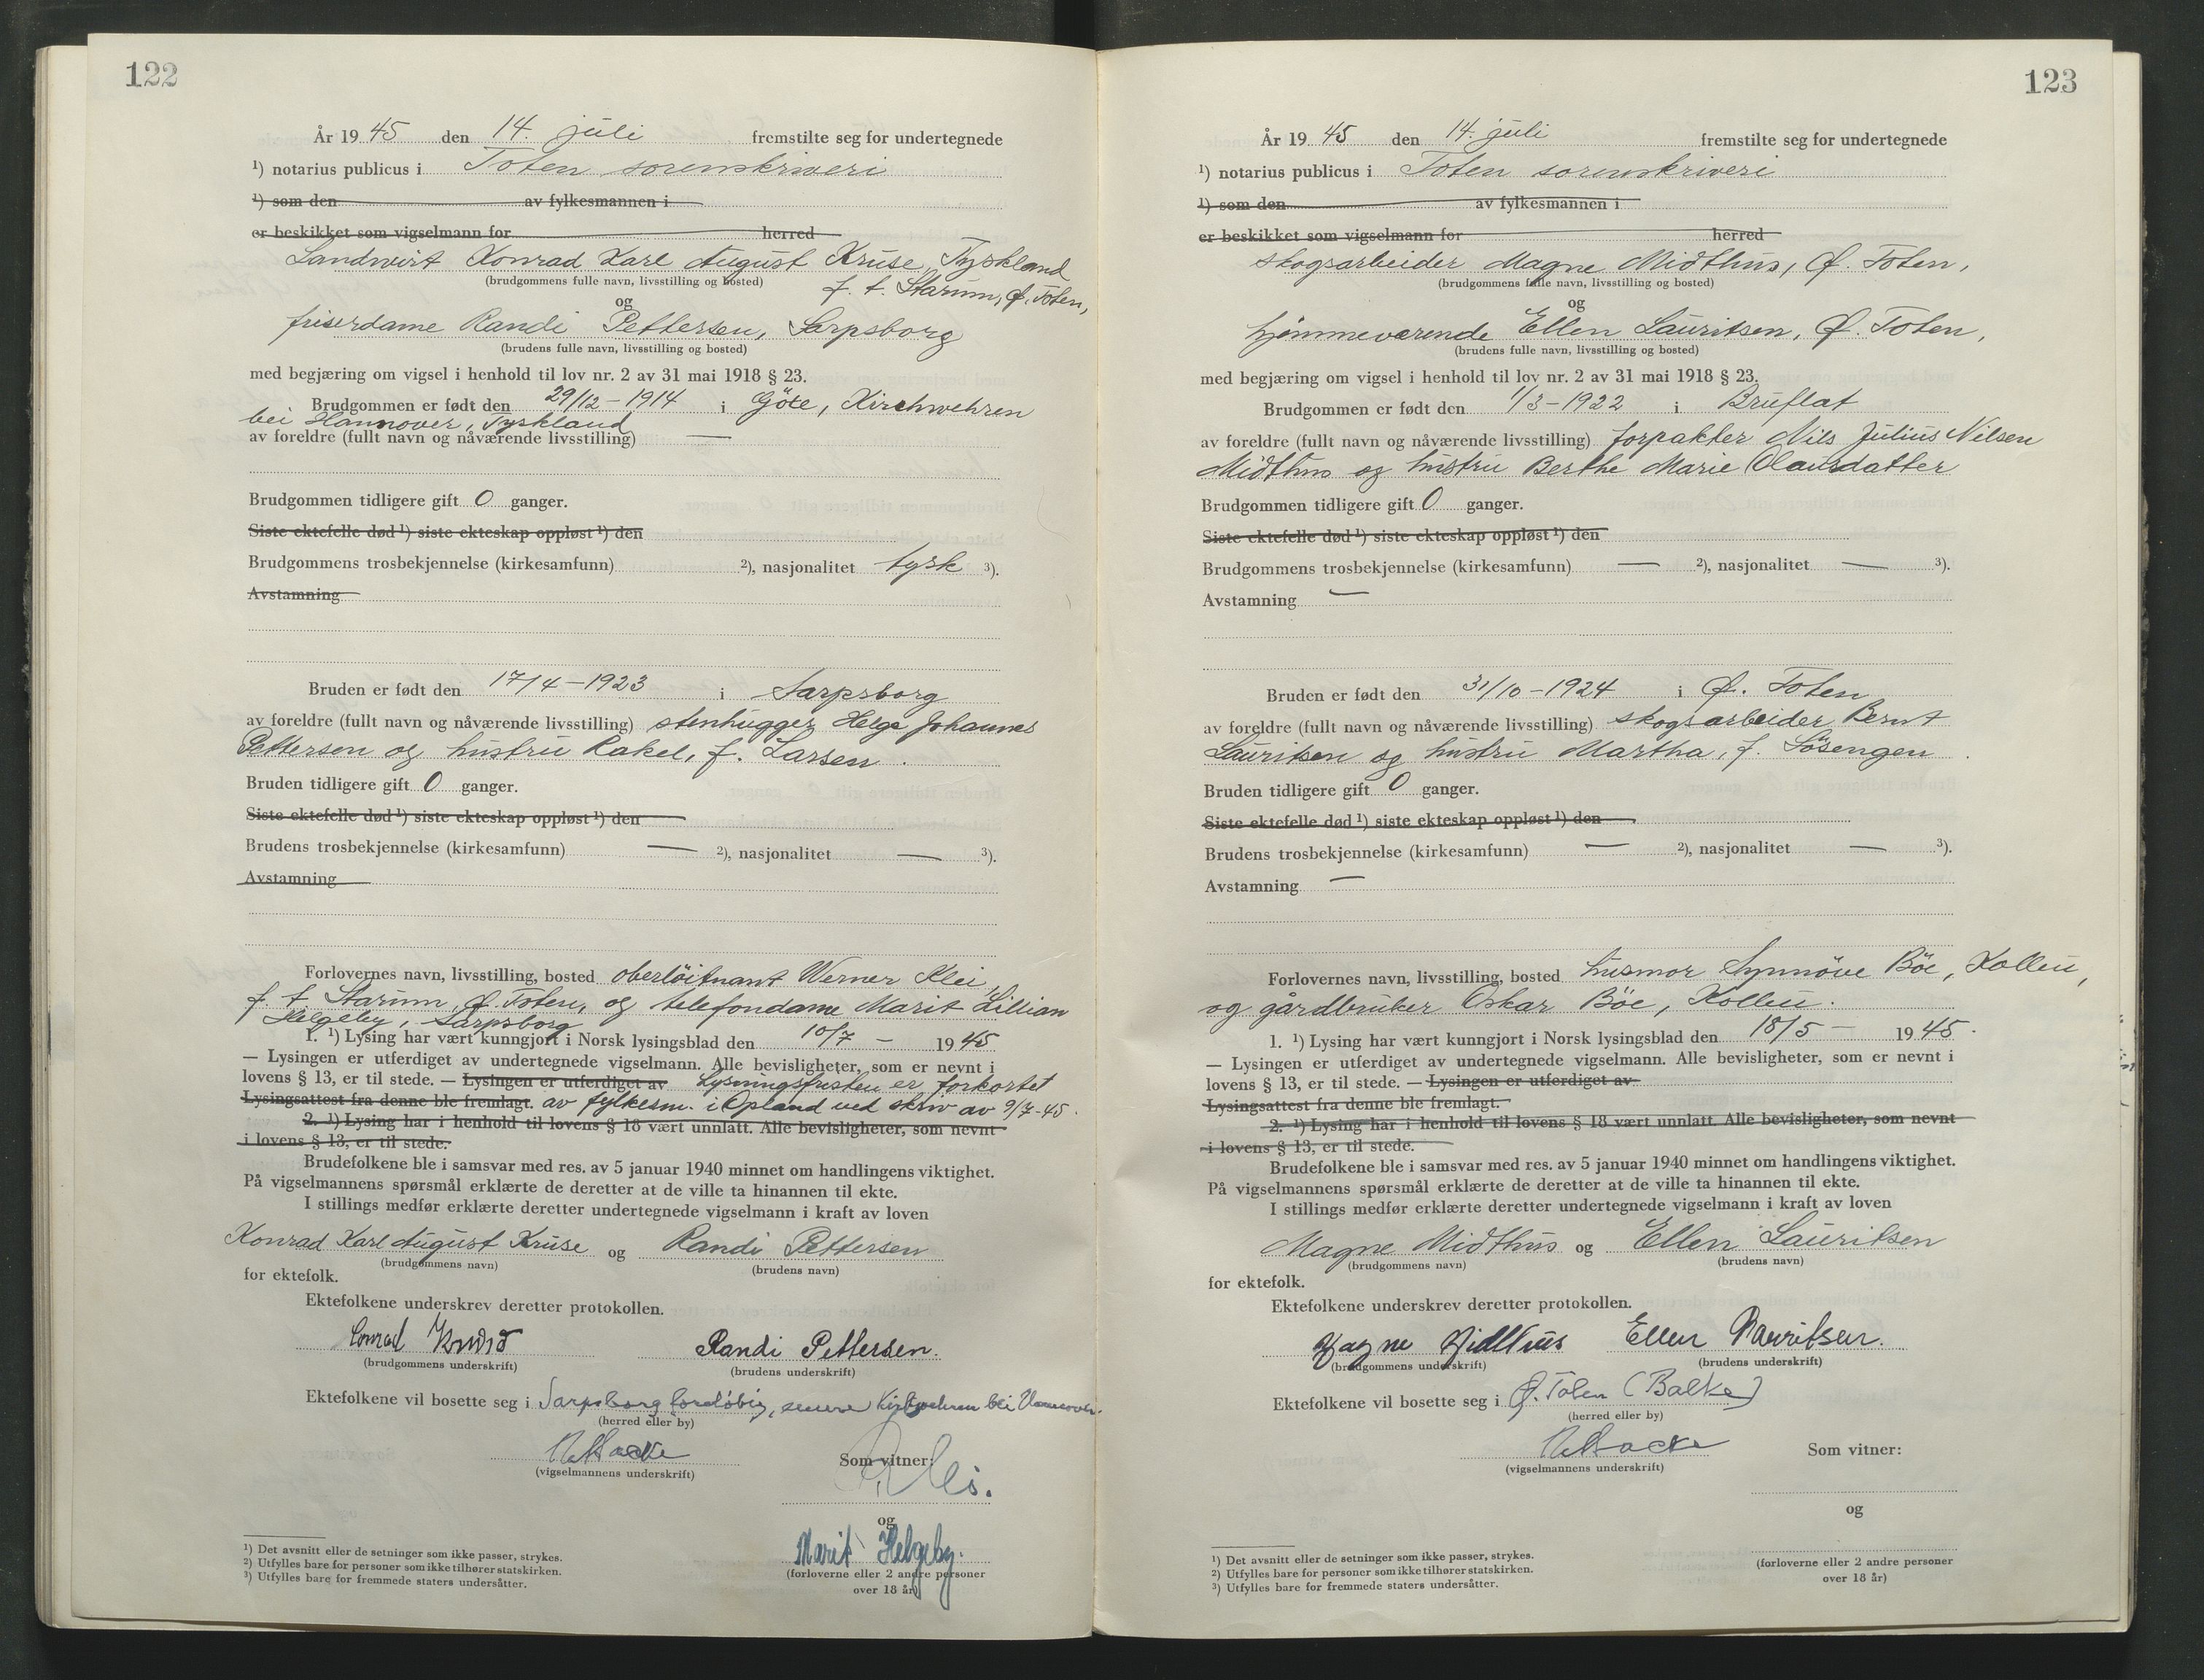 122
År 19 45 den 14. juli fremstilte seg for undertegnede
¹) notarius publicus i Toten sorenskriveri
¹) som den av fylkesmannen i
er beskikket som vigselmann for herred
Landwirt Konrad Karl August Kruse, Tyskland
(brudgommens fulle navn, livsstilling og bosted) f. t. Starum, Ø. Toten,
og
friserdame Randi Pettersen, Sarpsborg
(brudens fulle navn, livsstilling og bosted)
med begjæring om vigsel i henhold til lov nr. 2 av 31 mai 1918 § 23.
Brudgommen er født den 29/12 - 1914 i Göte, Kirchwehren
bei Hannover, Tyskland
av foreldre (fullt navn og nåværende livsstilling) —
Brudgommen tidligere gift 0 ganger.
Siste ektefelle død ¹) siste ekteskap oppløst ¹) den
Brudgommens trosbekjennelse (kirkesamfunn) ²), nasjonalitet tysk ³).
Avstamning
Bruden er født den 17/4 - 1923 i Sarpsborg
av foreldre (fullt navn og nåværende livsstilling) stenhugger Helge Johannes
Pettersen og hustru Rakel, f. Larsen.
Bruden tidligere gift 0 ganger.
Siste ektefelle død ¹) siste ekteskap oppløst ¹) den
Brudens trosbekjennelse (kirkesamfunn) — ²), nasjonalitet — ³).
Avstamning
Forlovernes navn, livsstilling, bosted oberlöitnant Werner Klei,
f. t. Starum, Ø. Toten, og telefondame Marit Lillian
Helgeby, Sarpsborg
1. ¹) Lysing har vært kunngjort i Norsk lysingsblad den 10/7 - 19 45
— Lysingen er utferdiget av undertegnede vigselmann. Alle bevisligheter, som er nevnt i
lovens § 13, er til stede. — Lysingen er utferdiget av Lysningsfristen er forkortet
Lysingsattest fra denne ble fremlagt. av fylkesm. i Opland ved skriv av 9/7-45.
2. ¹) Lysing har i henhold til lovens § 18 vært unnlatt. Alle bevisligheter, som nevnt
i lovens § 13, er til stede.
Brudefolkene ble i samsvar med res. av 5 januar 1940 minnet om handlingens viktighet.
På vigselmannens spørsmål erklærte de deretter at de ville ta hinannen til ekte.
I stillings medfør erklærte deretter undertegnede vigselmann i kraft av loven
Konrad Karl August Kruse og Randi Pettersen
(brudgommens navn) (brudens navn)
for ektefolk.
Ektefolkene underskrev deretter protokollen.
Randi Pettersen.
(brudgommens underskrift) (brudens underskrift)
Ektefolkene vil bosette seg i Sarpsborg foreløbig, senere Kirchwehren bei Hannover.
(herred eller by)
(vigselmannens underskrift) Som vitner:
og
Marit Helgeby.
(forloverne eller 2 andre personer
over 18 år)
¹) Det avsnitt eller de setninger som ikke passer, strykes.
²) Utfylles bare for personer som ikke tilhører statskirken.
³) Utfylles bare for fremmede staters undersåtter.
123
År 19 45 den 14. juli fremstilte seg for undertegnede
¹) notarius publicus i Toten sorenskriveri
¹) som den av fylkesmannen i
er beskikket som vigselmann for herred
skogsarbeider Magne Midthus, Ø. Toten,
(brudgommens fulle navn, livsstilling og bosted)
og
hjemmeværende Ellen Lauritsen, Ø. Toten,
(brudens fulle navn, livsstilling og bosted)
med begjæring om vigsel i henhold til lov nr. 2 av 31 mai 1918 § 23.
Brudgommen er født den 1/3 - 1922 i Bruflat
av foreldre (fullt navn og nåværende livsstilling) forpakter Nils Julius Nilsen
Midthus og hustru Berthe Marie Olausdatter
Brudgommen tidligere gift 0 ganger.
Siste ektefelle død ¹) siste ekteskap oppløst ¹) den
Brudgommens trosbekjennelse (kirkesamfunn) — ²), nasjonalitet — ³).
Avstamning —
Bruden er født den 31/10 - 1924 i Ø. Toten
av foreldre (fullt navn og nåværende livsstilling) skogsarbeider Bernt
Lauritsen og hustru Martha, f. Sösengen.
Bruden tidligere gift 0 ganger.
Siste ektefelle død ¹) siste ekteskap oppløst ¹) den
Brudens trosbekjennelse (kirkesamfunn) — ²), nasjonalitet — ³).
Avstamning —
Forlovernes navn, livsstilling, bosted husmor Synnöve Böe, Kolbu,
og gårdbruker Oskar Böe, Kolbu.
1. ¹) Lysing har vært kunngjort i Norsk lysingsblad den 18/5 - 19 45.
— Lysingen er utferdiget av undertegnede vigselmann. Alle bevisligheter, som er nevnt i
lovens § 13, er til stede. — Lysingen er utferdiget av
Lysingsattest fra denne ble fremlagt.
2. ¹) Lysing har i henhold til lovens § 18 vært unnlatt. Alle bevisligheter, som nevnt
i lovens § 13, er til stede.
Brudefolkene ble i samsvar med res. av 5 januar 1940 minnet om handlingens viktighet.
På vigselmannens spørsmål erklærte de deretter at de ville ta hinannen til ekte.
I stillings medfør erklærte deretter undertegnede vigselmann i kraft av loven
Magne Midthus og Ellen Lauritsen
(brudgommens navn) (brudens navn)
for ektefolk.
Ektefolkene underskrev deretter protokollen.
Magne Midthus Ellen Lauritsen.
(brudgommens underskrift) (brudens underskrift)
Ektefolkene vil bosette seg i Ø. Toten (Balke)
(herred eller by)
(vigselmannens underskrift) Som vitner:
og
(forloverne eller 2 andre personer
over 18 år)
¹) Det avsnitt eller de setninger som ikke passer, strykes.
²) Utfylles bare for personer som ikke tilhører statskirken.
³) Utfylles bare for fremmede staters undersåtter.